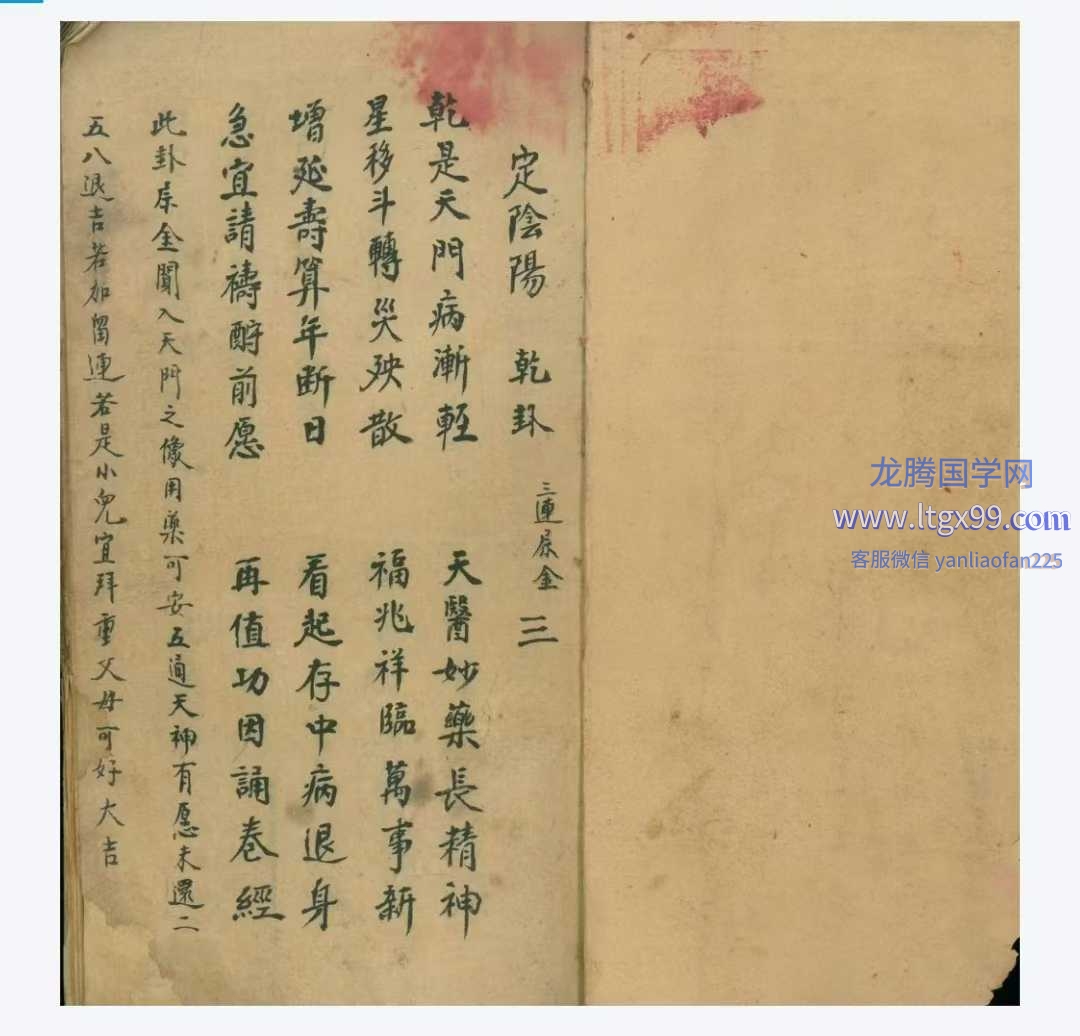 定陰陽 乾卦 三連屬金 ☰
乾是天門病漸輕 天醫妙藥長精神
星移斗轉災殃散 福兆祥臨萬事新
增延壽算年断日 看起存中病退身
急宜請禱酧前愿 再值功因誦卷經
此卦屬金闖入天門之像用藥可安五道天神有愿未還二
五八退吉若加留連若是小兒宜拜重父母可好大吉
龙腾国学网
www.ltgx99.com
客服微信 yanliaofan225